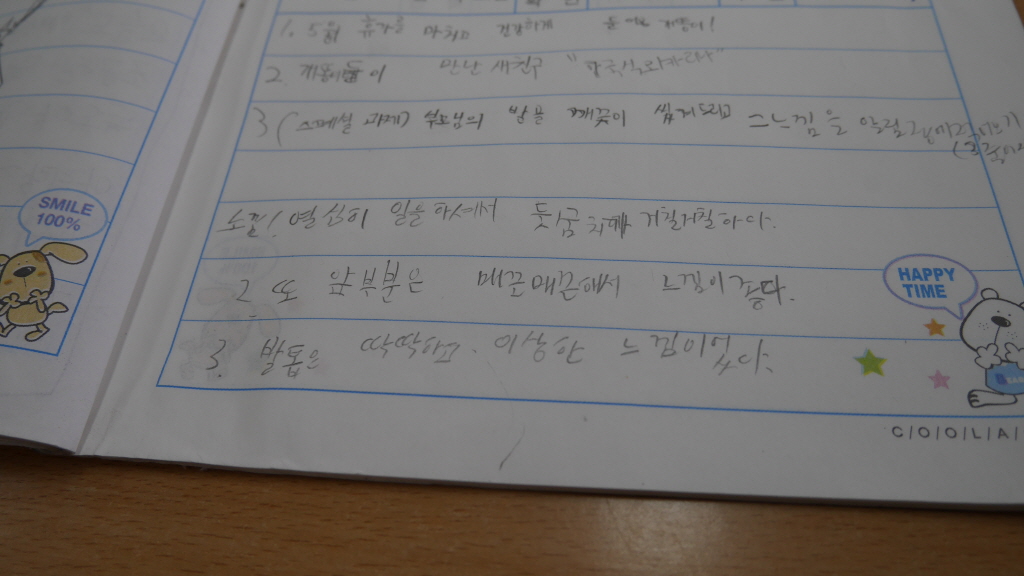 SMILE 100%
1. 5월 휴가를 마치고 건강하게
2. 개봉이들이 만난 새친구 "
3 (스페셜 과제) 부모님의 발을 깨끗이 씻겨드리고 그 느낌을 알림장에
느낌! 열심히 일을하셔서 뒷굼치가 거칠거칠하다.
2 또 앞부분은 매끈매끈해서 느낌이좋다.
3. 발톱은 딱딱하고 이상한 느낌이었다.
HAPPY TIME
C/O/O/L/A/